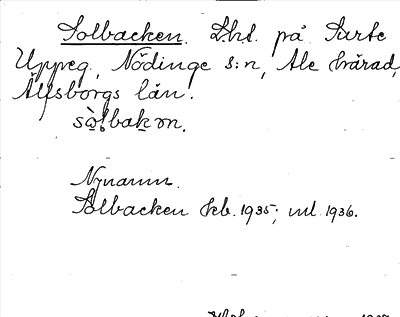 Solbacken. Lht. på Surte
Uppeg. Nödinge s:n, Ale härad,
Älvsborgs län.
sὼlbakən.
Nynamn.
Solbacken Skb. 1935; ml. 1936.